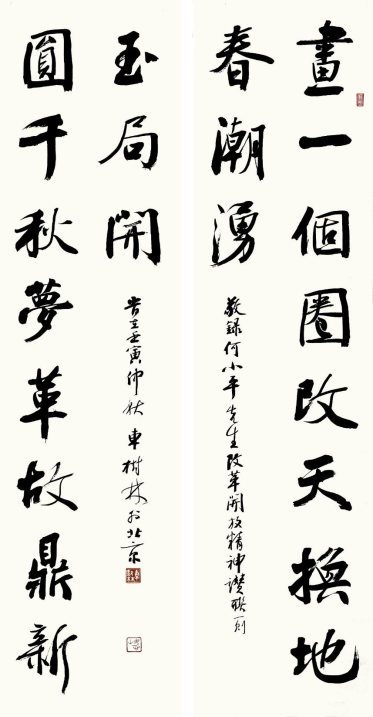 畫一個圈改天換地
春潮湧
敬錄何小平先生改革開放精神讚聯一則
圓千秋夢革故鼎新
玉局開
歲在壬寅仲秋車樹林於北京